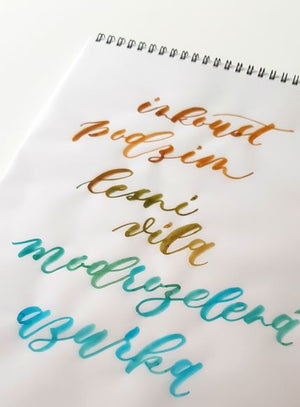 inkoust
podzim
lesní
víla
modrozelená
azurka